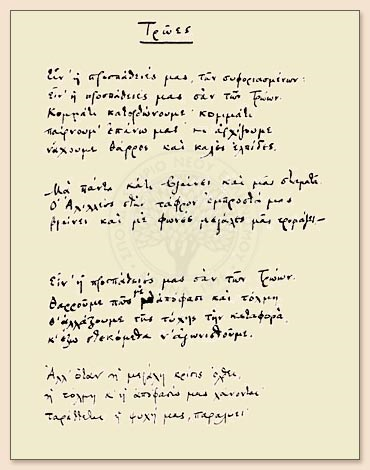 Τρῶες
Εἶν' ἡ προσπάθειές μας, τῶν συφοριασμένων·
εἶν' ἡ προσπάθειές μας σὰν τῶν Τρώων.
Κομμάτι κατορθώνουμε· κομμάτι
παίρνουμ' ἐπάνω μας· κι ἀρχίζουμε
νάχουμε θάρρος καὶ καλὲς ἐλπίδες.
—Μὰ πάντα κάτι βγαίνει καὶ μᾶς σταματᾶ.
Ὁ Ἀχιλλεὺς στὴν τάφρον ἐμπροστά μας
βγαίνει καὶ μὲ φωνὲς μεγάλες μᾶς τρομάζει.—
Εἶν' ἡ προσπάθειές μας σὰν τῶν Τρώων.
Θαρροῦμε πῶς μὲ ἀπόφασι καὶ τόλμη
θ' ἀλλάξουμε τῆς τύχης τὴν καταφορά,
κ' ἔξω στεκόμεθα ν' ἀγωνισθοῦμε.
Ἀλλ' ὅταν ἡ μεγάλη κρίσις ἔλθει,
ἡ τόλμη κ' ἡ ἀπόφασίς μας χάνονται·
ταράττεται ἡ ψυχή μας, παραλύει·